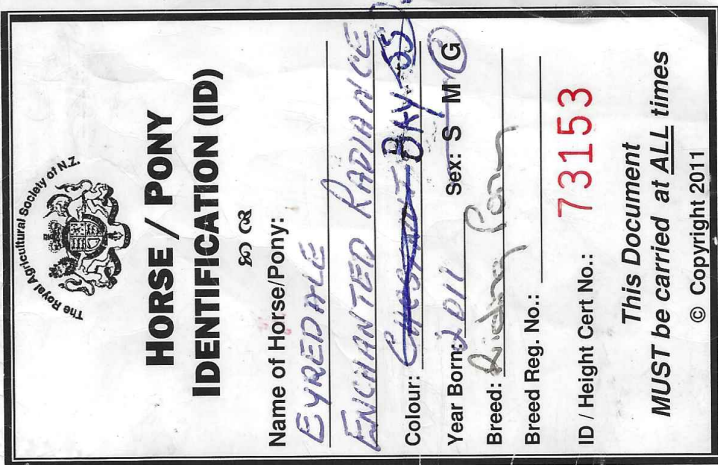 The Royal Agricultural Society of N.Z.
HORSE / PONY
IDENTIFICATION (ID)
Name of Horse/Pony:
EYREDALE
ENCHANTED RADIANCE
Colour: CHESTNUT BAY
Year Born: 2011 Sex: S M G
Breed: Riding Pony
Breed Reg. No.:
ID / Height Cert No.: 73153
This Document
MUST be carried at ALL times
© Copyright 2011